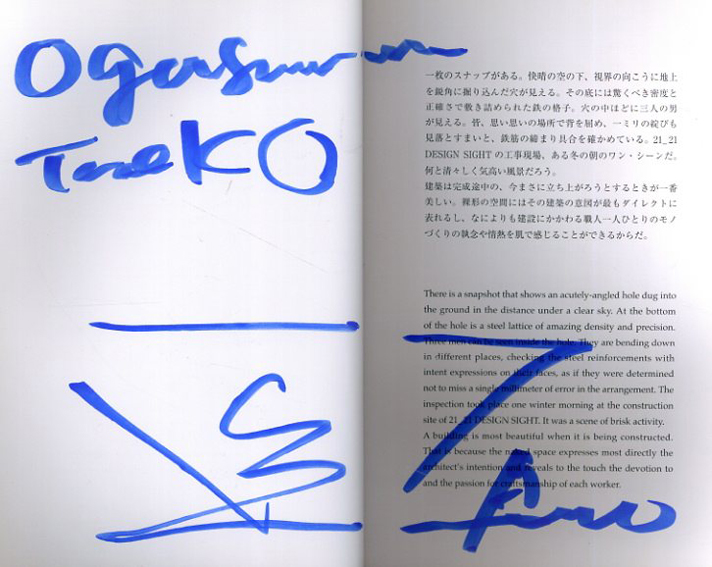 Ogasawara
TaeKO
一枚のスナップがある。快晴の空の下、視界の向こうに地上
を鋭角に掘り込んだ穴が見える。その底には驚くべき密度と
正確さで敷き詰められた鉄の格子。穴の中ほどに三人の男
が見える。皆、思い思いの場所で背を屈め、一ミリの綻びも
見落とすまいと、鉄筋の締まり具合を確かめている。21_21
DESIGN SIGHT の工事現場、ある冬の朝のワン・シーンだ。
何と清々しく気高い風景だろう。
建築は完成途中の、今まさに立ち上がろうとするときが一番
美しい。裸形の空間にはその建築の意図が最もダイレクトに
表れるし、なによりも建設にかかわる職人一人ひとりのモノ
づくりの執念や情熱を肌で感じることができるからだ。
There is a snapshot that shows an acutely-angled hole dug into
the ground in the distance under a clear sky. At the bottom
of the hole is a steel lattice of amazing density and precision.
Three men can be seen inside the hole. They are bending down
in different places, checking the steel reinforcements with
intent expressions on their faces, as if they were determined
not to miss a single millimeter of error in the arrangement. The
inspection took place one winter morning at the construction
site of 21_21 DESIGN SIGHT. It was a scene of brisk activity.
A building is most beautiful when it is being constructed.
That is because the naked space expresses most directly the
architect's intention and reveals to the touch the devotion to
and the passion for craftsmanship of each worker.